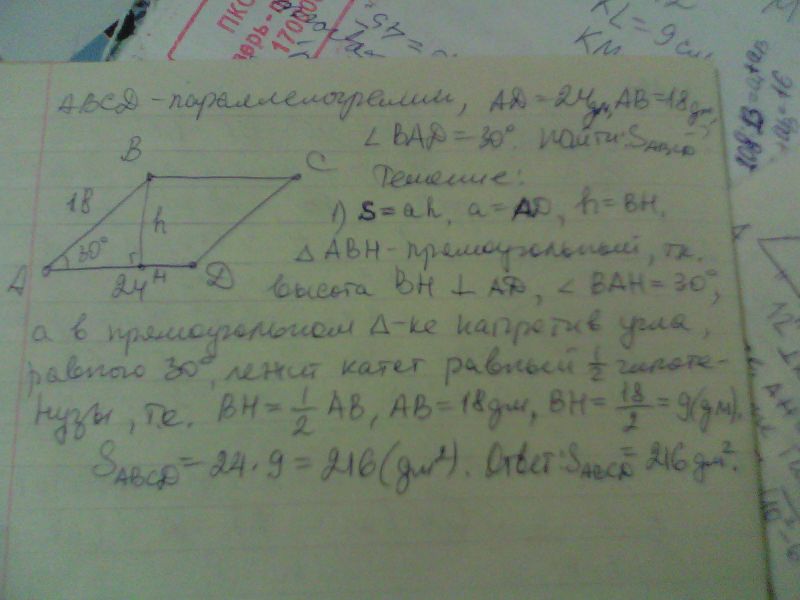 ПКО
17000
KL = 9 см
KM
ABCD - параллелограмм, AD = 24 дм, AB = 18 дм,
∠ BAD = 30°. Найти: S ABCD
B
C
18
h
30°
A
24
H
D
Решение:
1) S = ah, a = AD, h = BH,
△ ABH - прямоугольный, т.к.
высота BH ⊥ AD, ∠ BAH = 30°,
а в прямоугольном Δ-ке напротив угла,
равного 30°, лежит катет равный 1/2 гипоте-
нузы, т.е. BH = 1/2 AB, AB = 18 дм, BH = 18/2 = 9 (дм).
S ABCD = 24 · 9 = 216 (дм²). Ответ: S ABCD = 216 дм².